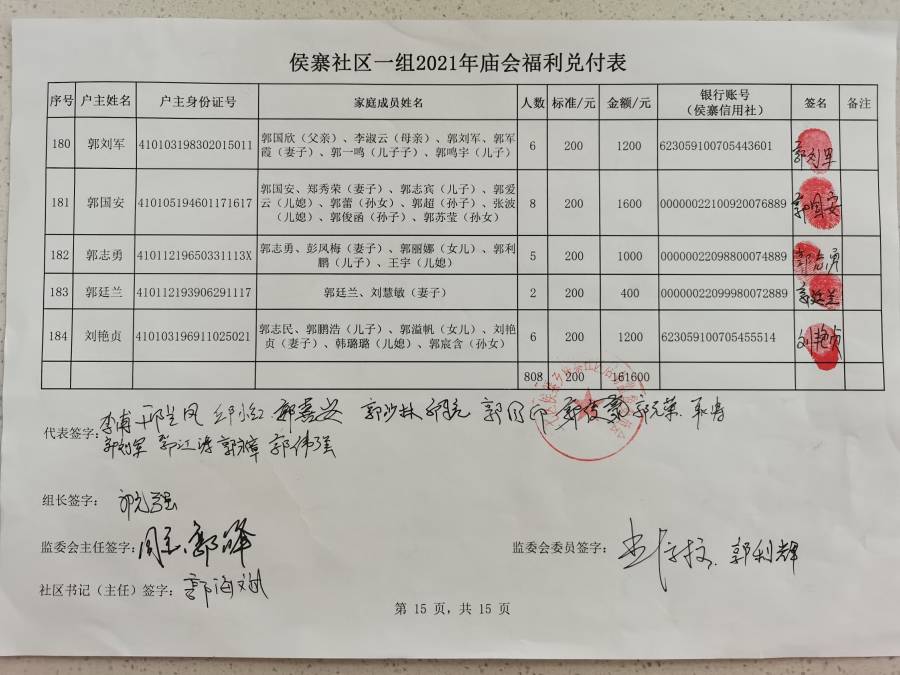 侯寨社区一组2021年庙会福利兑付表
序号 户主姓名 户主身份证号 家庭成员姓名 人数 标准/元 金额/元 银行账号（侯寨信用社） 签名 备注
180 郭刘军 410103198302015011 郭国欣（父亲）、李淑云（母亲）、郭刘军、郭军 6 200 1200 623059100705443601 郭刘军
霞（妻子）、郭一鸣（儿子子）、郭鸣宇（儿子）
181 郭国安 410105194601171617 郭国安、郑秀荣（妻子）、郭志宾（儿子）、郭爱 8 200 1600 00000022100920076889 郭国安
云（儿媳）、郭蕾（孙女）、郭超（孙子）、张波
（儿媳）、郭俊函（孙子）、郭苏莹（孙女）
182 郭志勇 41011219650331113X 郭志勇、彭凤梅（妻子）、郭丽娜（女儿）、郭利 5 200 1000 00000022098800074889 郭志勇
鹏（儿子）、王宇（儿媳）
183 郭廷兰 410112193906291117 郭廷兰、刘慧敏（妻子） 2 200 400 00000022099980072889 郭廷兰
184 刘艳贞 410103196911025021 郭志民、郭鹏浩（儿子）、郭溢帆（女儿）、刘艳 6 200 1200 623059100705455514 刘艳贞
贞（妻子）、韩璐璐（儿媳）、郭宸含（孙女）
808 200 161600
代表签字：
郭刘军 郭江涛 郭伟强
组长签字：
监委会主任签字： 郭峰
监委会委员签字： 郭利辉
社区书记（主任）签字： 郭海斌
第 15 页，共 15 页